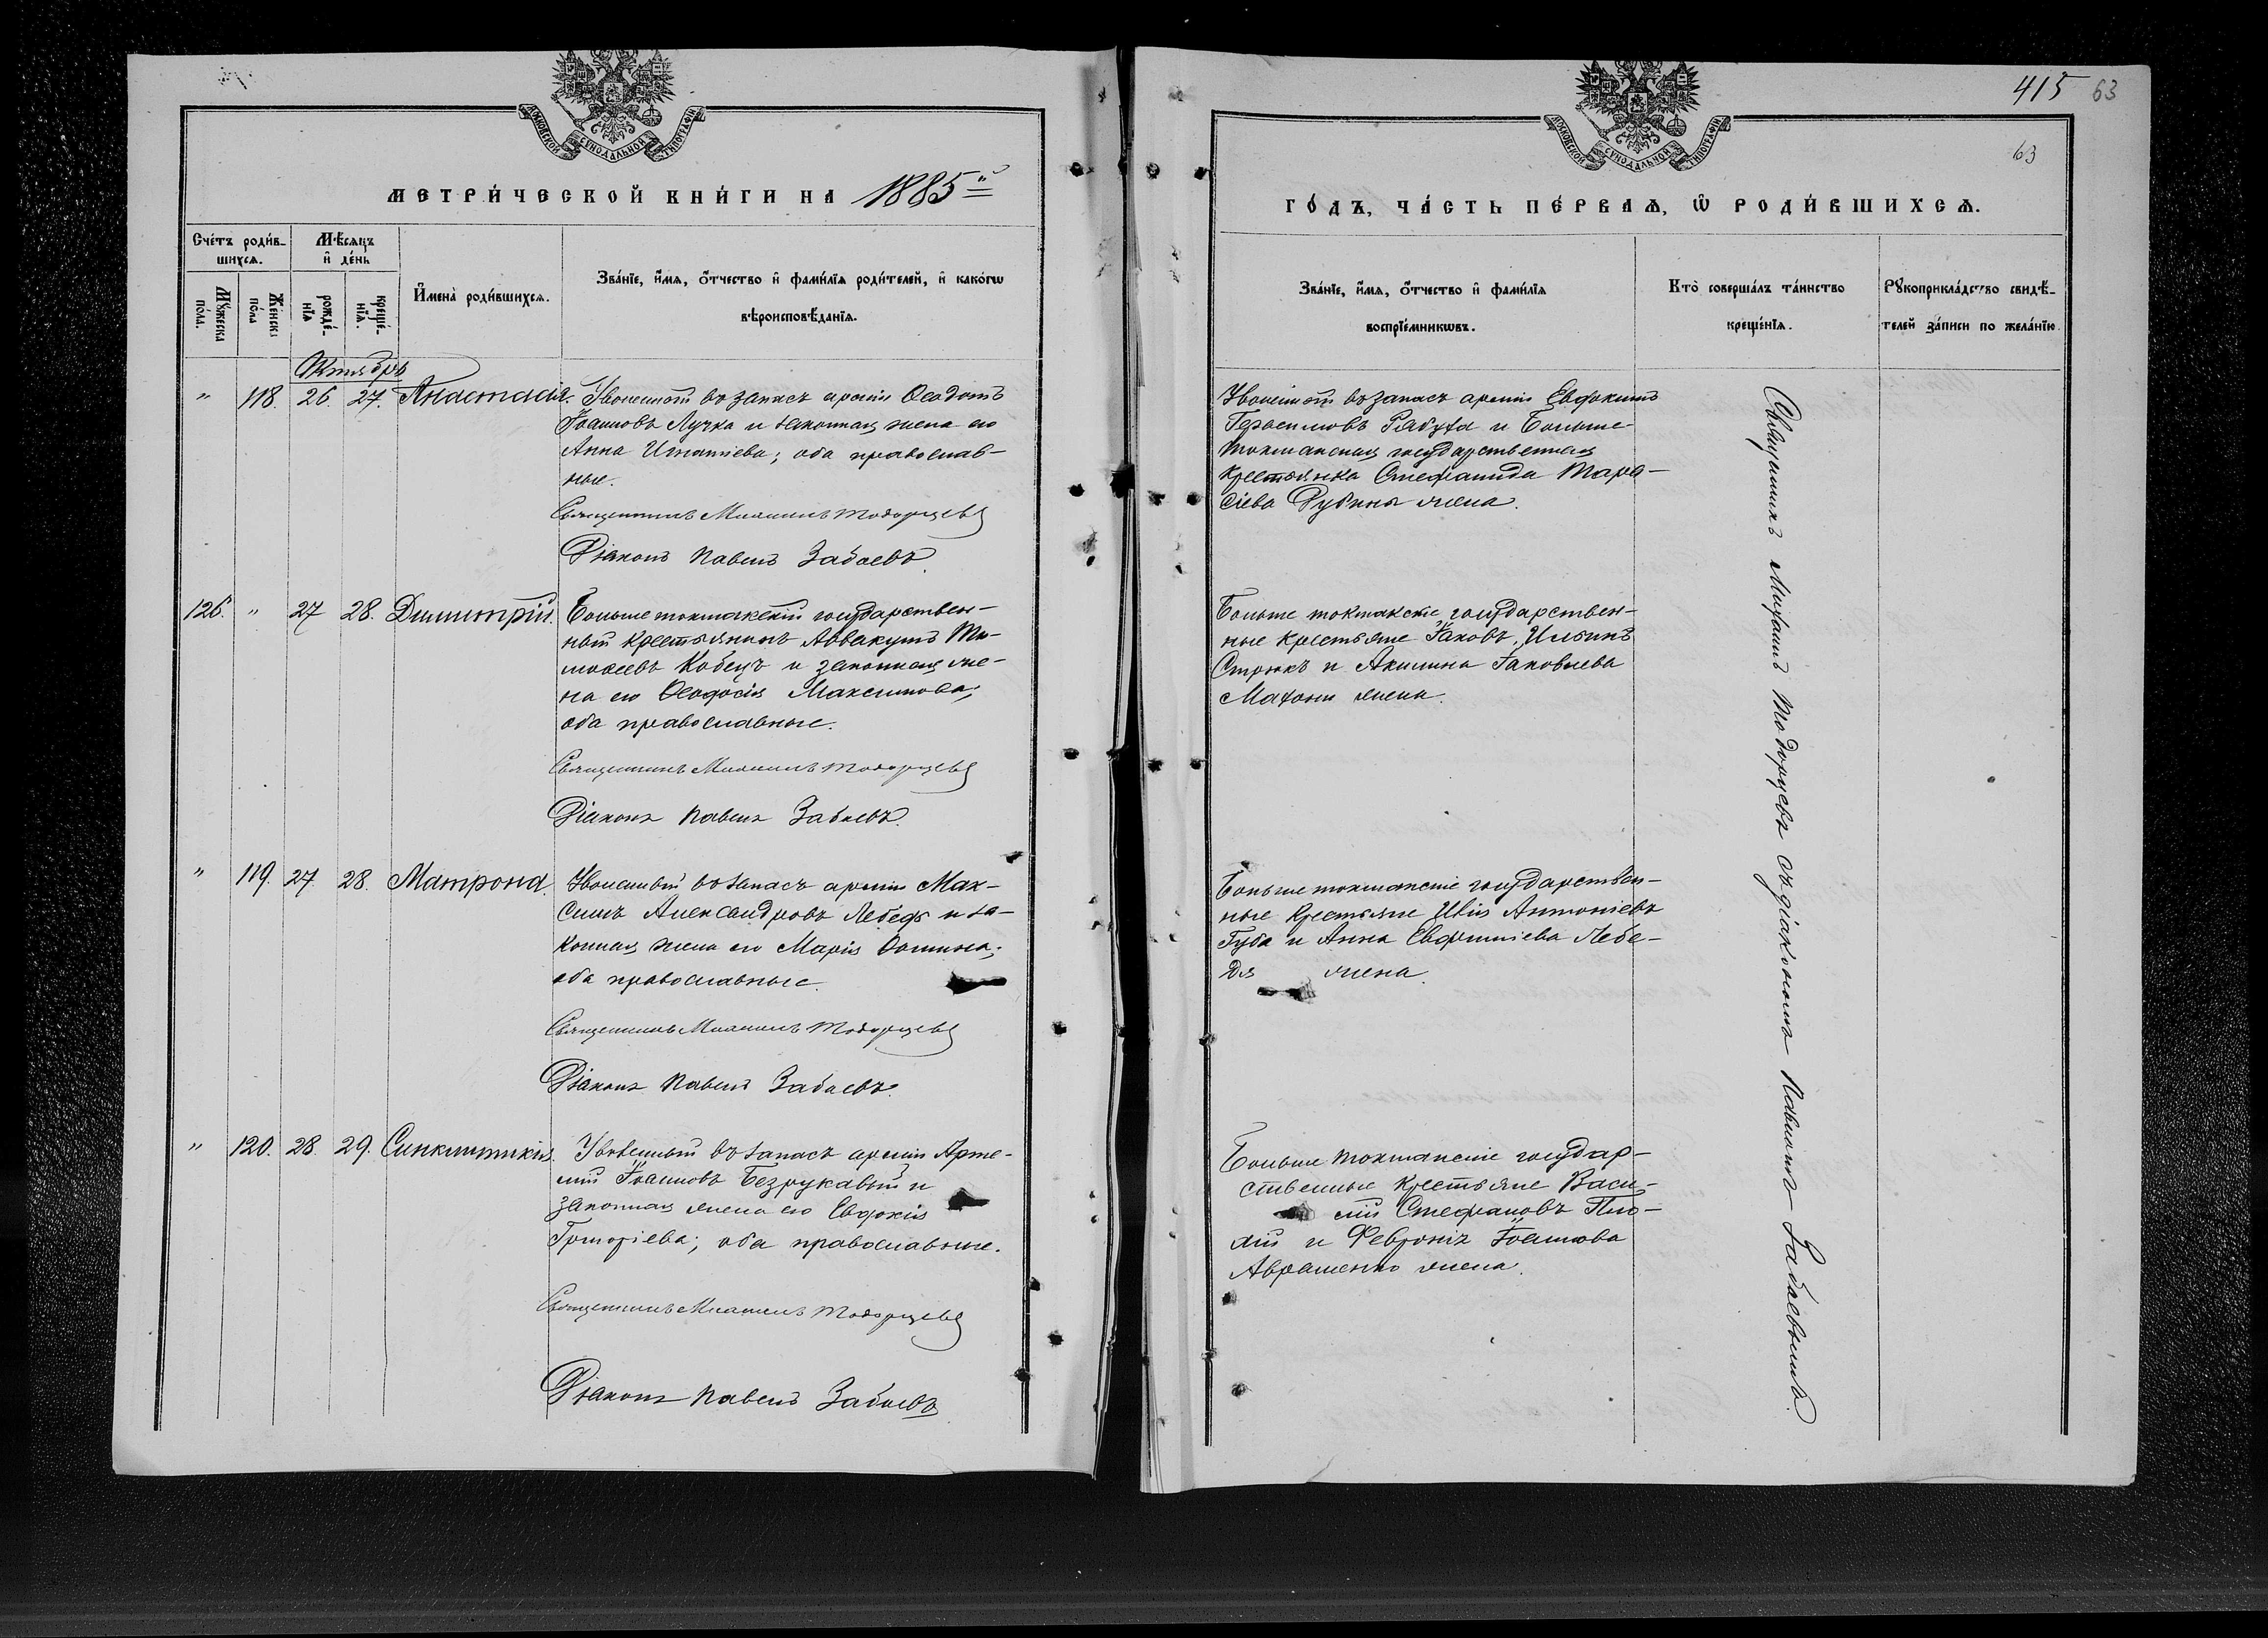 МОСКОВСКОЙ СѴНОДАЛЬНОЙ ТИПОГРАФІИ
МЕТРИ́ЧЕСКОЙ КНИ́ГИ НА 1885й
Сче́тъ роди́в-
шихся.
Мѣ́сяцъ
и҆ де́нь
Мꙋ́жеска
по́ла.
Же́нска
по́ла
рожде́-
нїя
креще́-
нїя.
И҆мена̀ роди́вшихся.
Зва́нїе, и҆́мя, ѻ҆́тчество и҆ фами́лїя роди́телей, и҆ како́гѡ
вѣроисповѣ́данїя.
Октябрь
" 118. 26. 27. Анастасія. Уволенный въ запасъ арміи Ѳеодотъ
Іоанновъ Лучка и законная жена его
Анна Игнатіева; оба православ-
ные.
Священникъ Михаилъ Тодорцевъ
Діаконъ Павелъ Забаевъ.
126. " 27 28. Димитрій. Большетокмакскій государствен-
ный крестьянинъ Аввакумъ Ти-
моѳеевъ Кобецъ и законная же-
на его Ѳеодосія Максимова;
оба православные.
Священникъ Михаилъ Тодорцевъ
Діаконъ Павелъ Забаевъ.
" 119. 27. 28. Матрона. Уволенный въ запасъ арміи Мак-
симъ Александровъ Лебедь и за-
конная жена его Марія Ѳомина;
оба православные.
Священникъ Михаилъ Тодорцевъ
Діаконъ Павелъ Забаевъ.
" 120. 28. 29. Синклитикія. Уволенный въ запасъ арміи Арте-
мій Іоанновъ Безрукавый и
законная жена его Евдокія
Григоріева; оба православные.
Священникъ Михаилъ Тодорцевъ
Діаконъ Павелъ Забаевъ
415 63
63
МОСКОВСКОЙ СѴНОДАЛЬНОЙ ТИПОГРАФІИ
ГО́ДЪ, ЧА́СТЬ ПЕ́РВАЯ, Ѡ РОДИ́ВШИХСЯ.
Зва́нїе, и҆́мя, ѻ҆́тчество и҆ фами́лїя
воспрїе́мникѡвъ.
Кто̀ соверша́лъ та́инство
креще́нїя.
Рꙋкоприкла́дство свидѣ́-
телей за́писи по жела́нїю.
Уволенный въ запасъ арміи Евдокимъ
Герасимовъ Рябуха и Больше-
токмакская государственная
крестьянка Стефанида Тара-
сіева Дубины жена.
Больше токмакскіе государствен-
ные крестьяне Іаковъ Ильинъ
Стрюкъ и Акилина Іаковлева
Махони жена.
Больше токмакскіе государствен-
ные крестьяне Илія Антоніевъ
Губа и Анна Евфиміева Лебе-
дя жена.
Больше токмакскіе государ-
ственные крестьяне Васи-
лій Стефановъ
и Февронія Іоаннова
Авраменко жена.
Священникъ Михаилъ Тодорцевъ съ діакономъ Павломъ Забаевымъ.